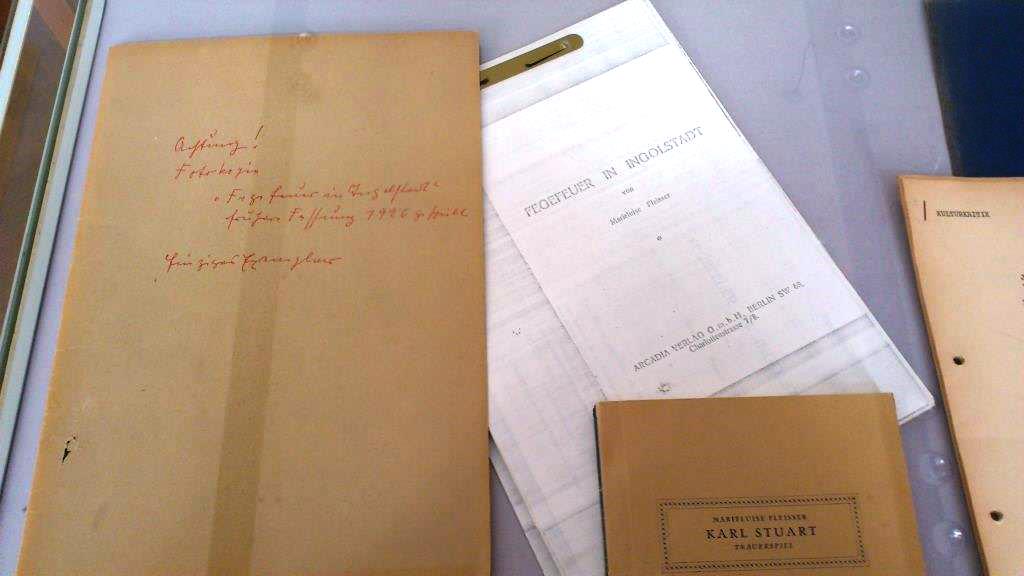 Achtung!
Fotokopie
"Fegefeuer in Ingolstadt"
frühere Fassung 1926
Einziges Exemplar
FEGEFEUER IN INGOLSTADT
von
Marieluise Fleisser
ARCADIA VERLAG G.m.b.H. BERLIN SW 68.
Charlottenstrasse 7/8.
MARIELUISE FLEISSER
KARL STUART
TRAUERSPIEL
KULTURKRITIK